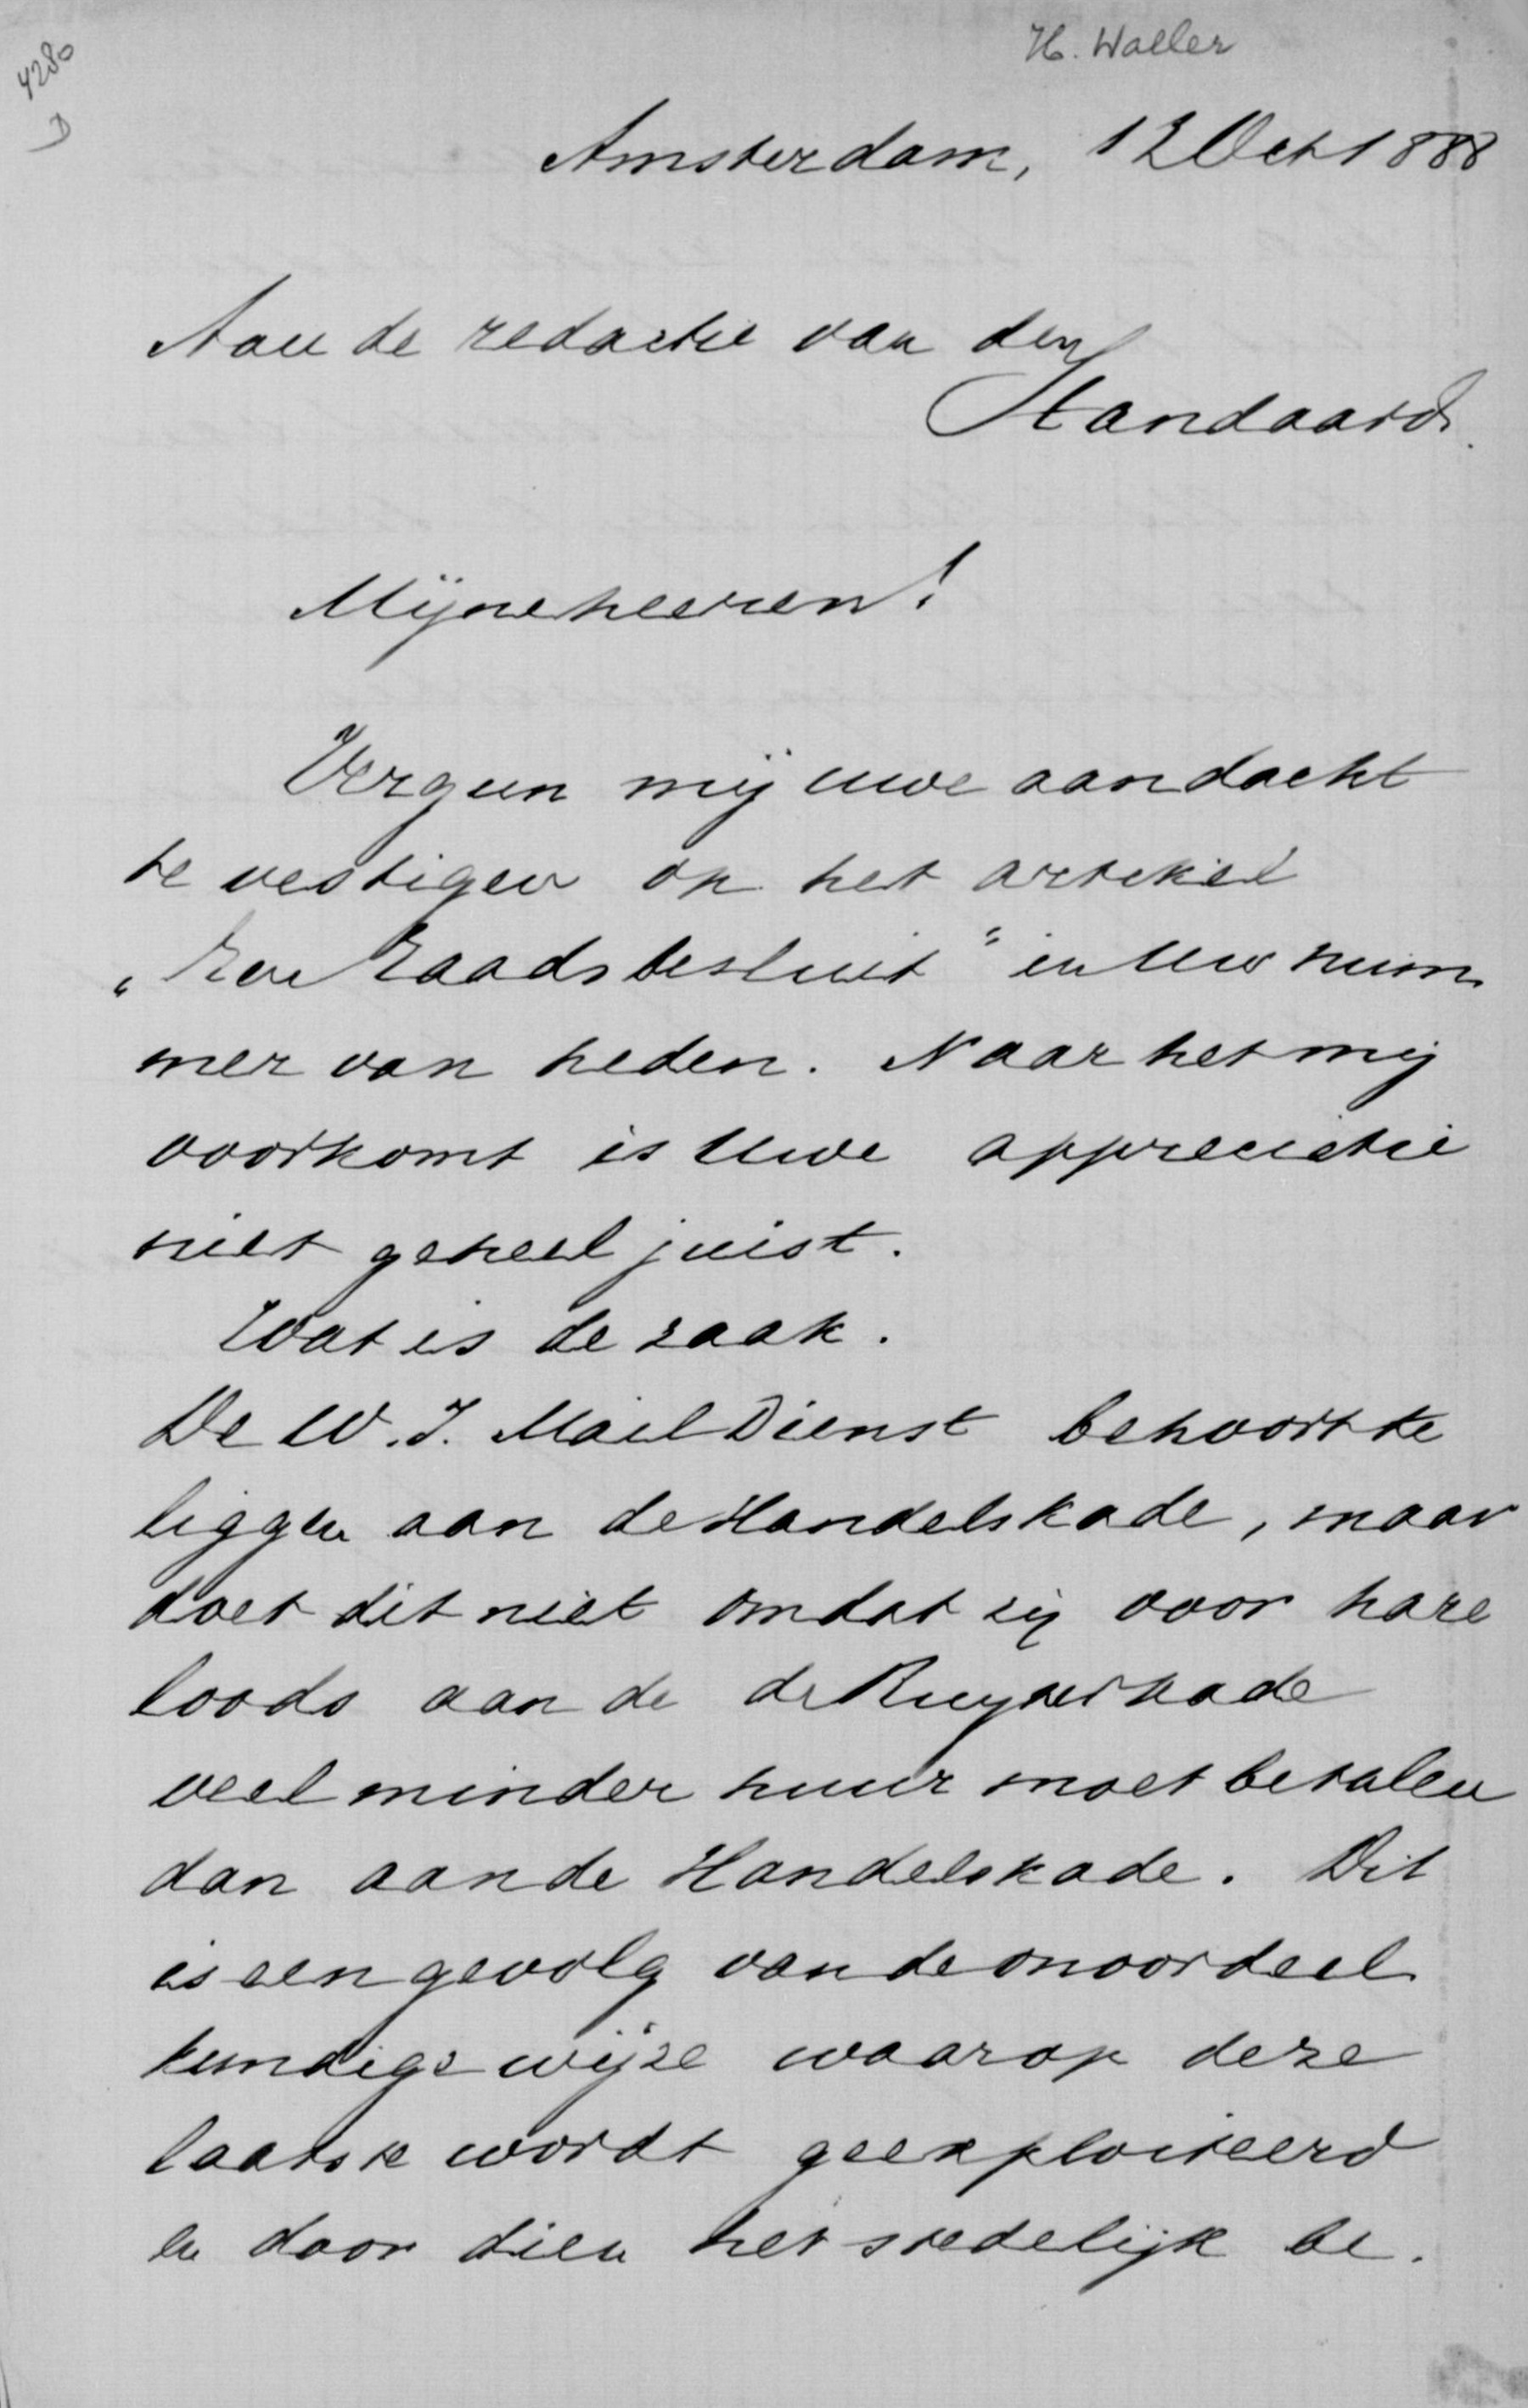 H. Waller
4280
D
Amsterdam, 12 Oct 1888
Aan de redactie van den
Standaard.
Mijneheeren!
Vergun mij uwe aandacht
te vestigen op het artikel
„Een Raadsbesluit" in Uw num
mer van heden. Naar het mij
voorkomt is Uwe appreciatie
niet geheel juist.
Wat is de zaak.
De W. I. Mail Dienst behoort te
liggen aan de Handelskade, maar
doet dit niet omdat zij voor hare
loods aan de de Ruyterkade
veel minder huur moet betalen
dan aan de Handelskade. Dit
is een gevolg van de onoordeel
kundige wijze waarop deze
laatste wordt geexploiteerd
en door dien het stedelijk be.